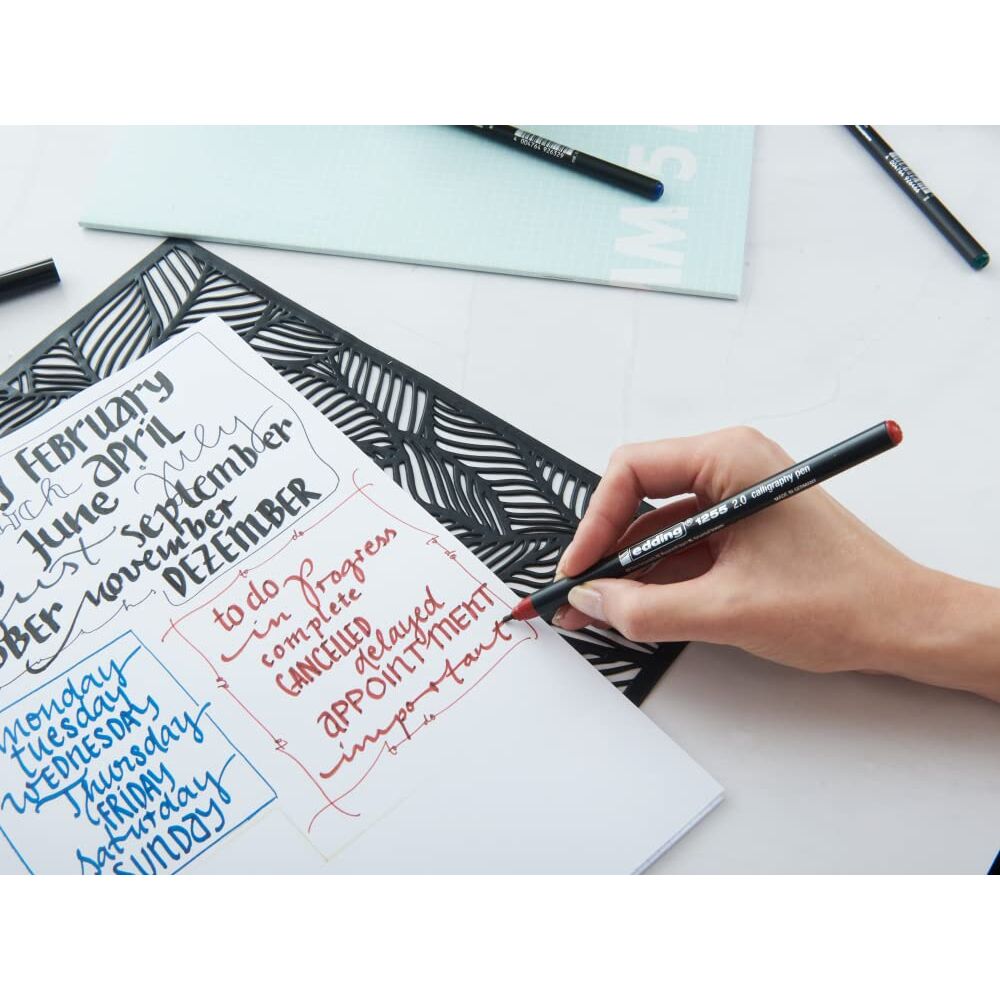 February
april July
June
September
november
DEZEMBER
monday
tuesday
WEDNESDAY
Thursday
FRIDAY
saturday
SUNDAY
to do
in Progress
complete
CANCELLED
delayed
APPOINTMENT
important
edding 1255 2.0 calligraphy pen
MADE IN GERMANY
4 004764 926329